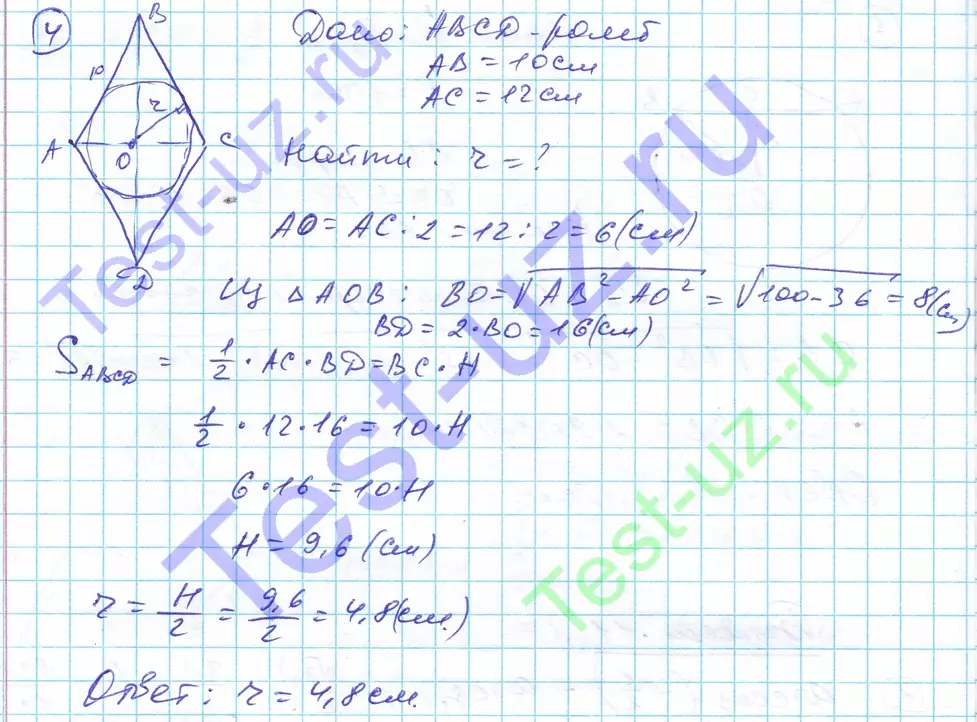 4
B
Дано: ABCD - ромб
10
AB = 10 см
AC = 12 см
r
A
C
O
Найти: r = ?
AO = AC : 2 = 12 : 2 = 6 (см)
D
Из △AOB: BO = √AB² - AO² = √100 - 36 = 8 (см)
BD = 2 · BO = 16 (см)
S ABCD = 1/2 · AC · BD = BC · H
1/2 · 12 · 16 = 10 · H
6 · 16 = 10 · H
H = 9,6 (см)
r = H/2 = 9,6/2 = 4,8 (см.)
Ответ: r = 4,8 см.
Test-uz.ru
Test-uz.ru
Test-uz.ru